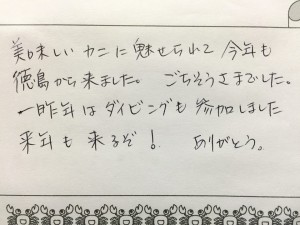 美味しいカニに魅せられて今年も
徳島から来ました。 ごちそうさまでした。
一昨年はダイビングも参加しました
来年も来るぞ! ありがとう。